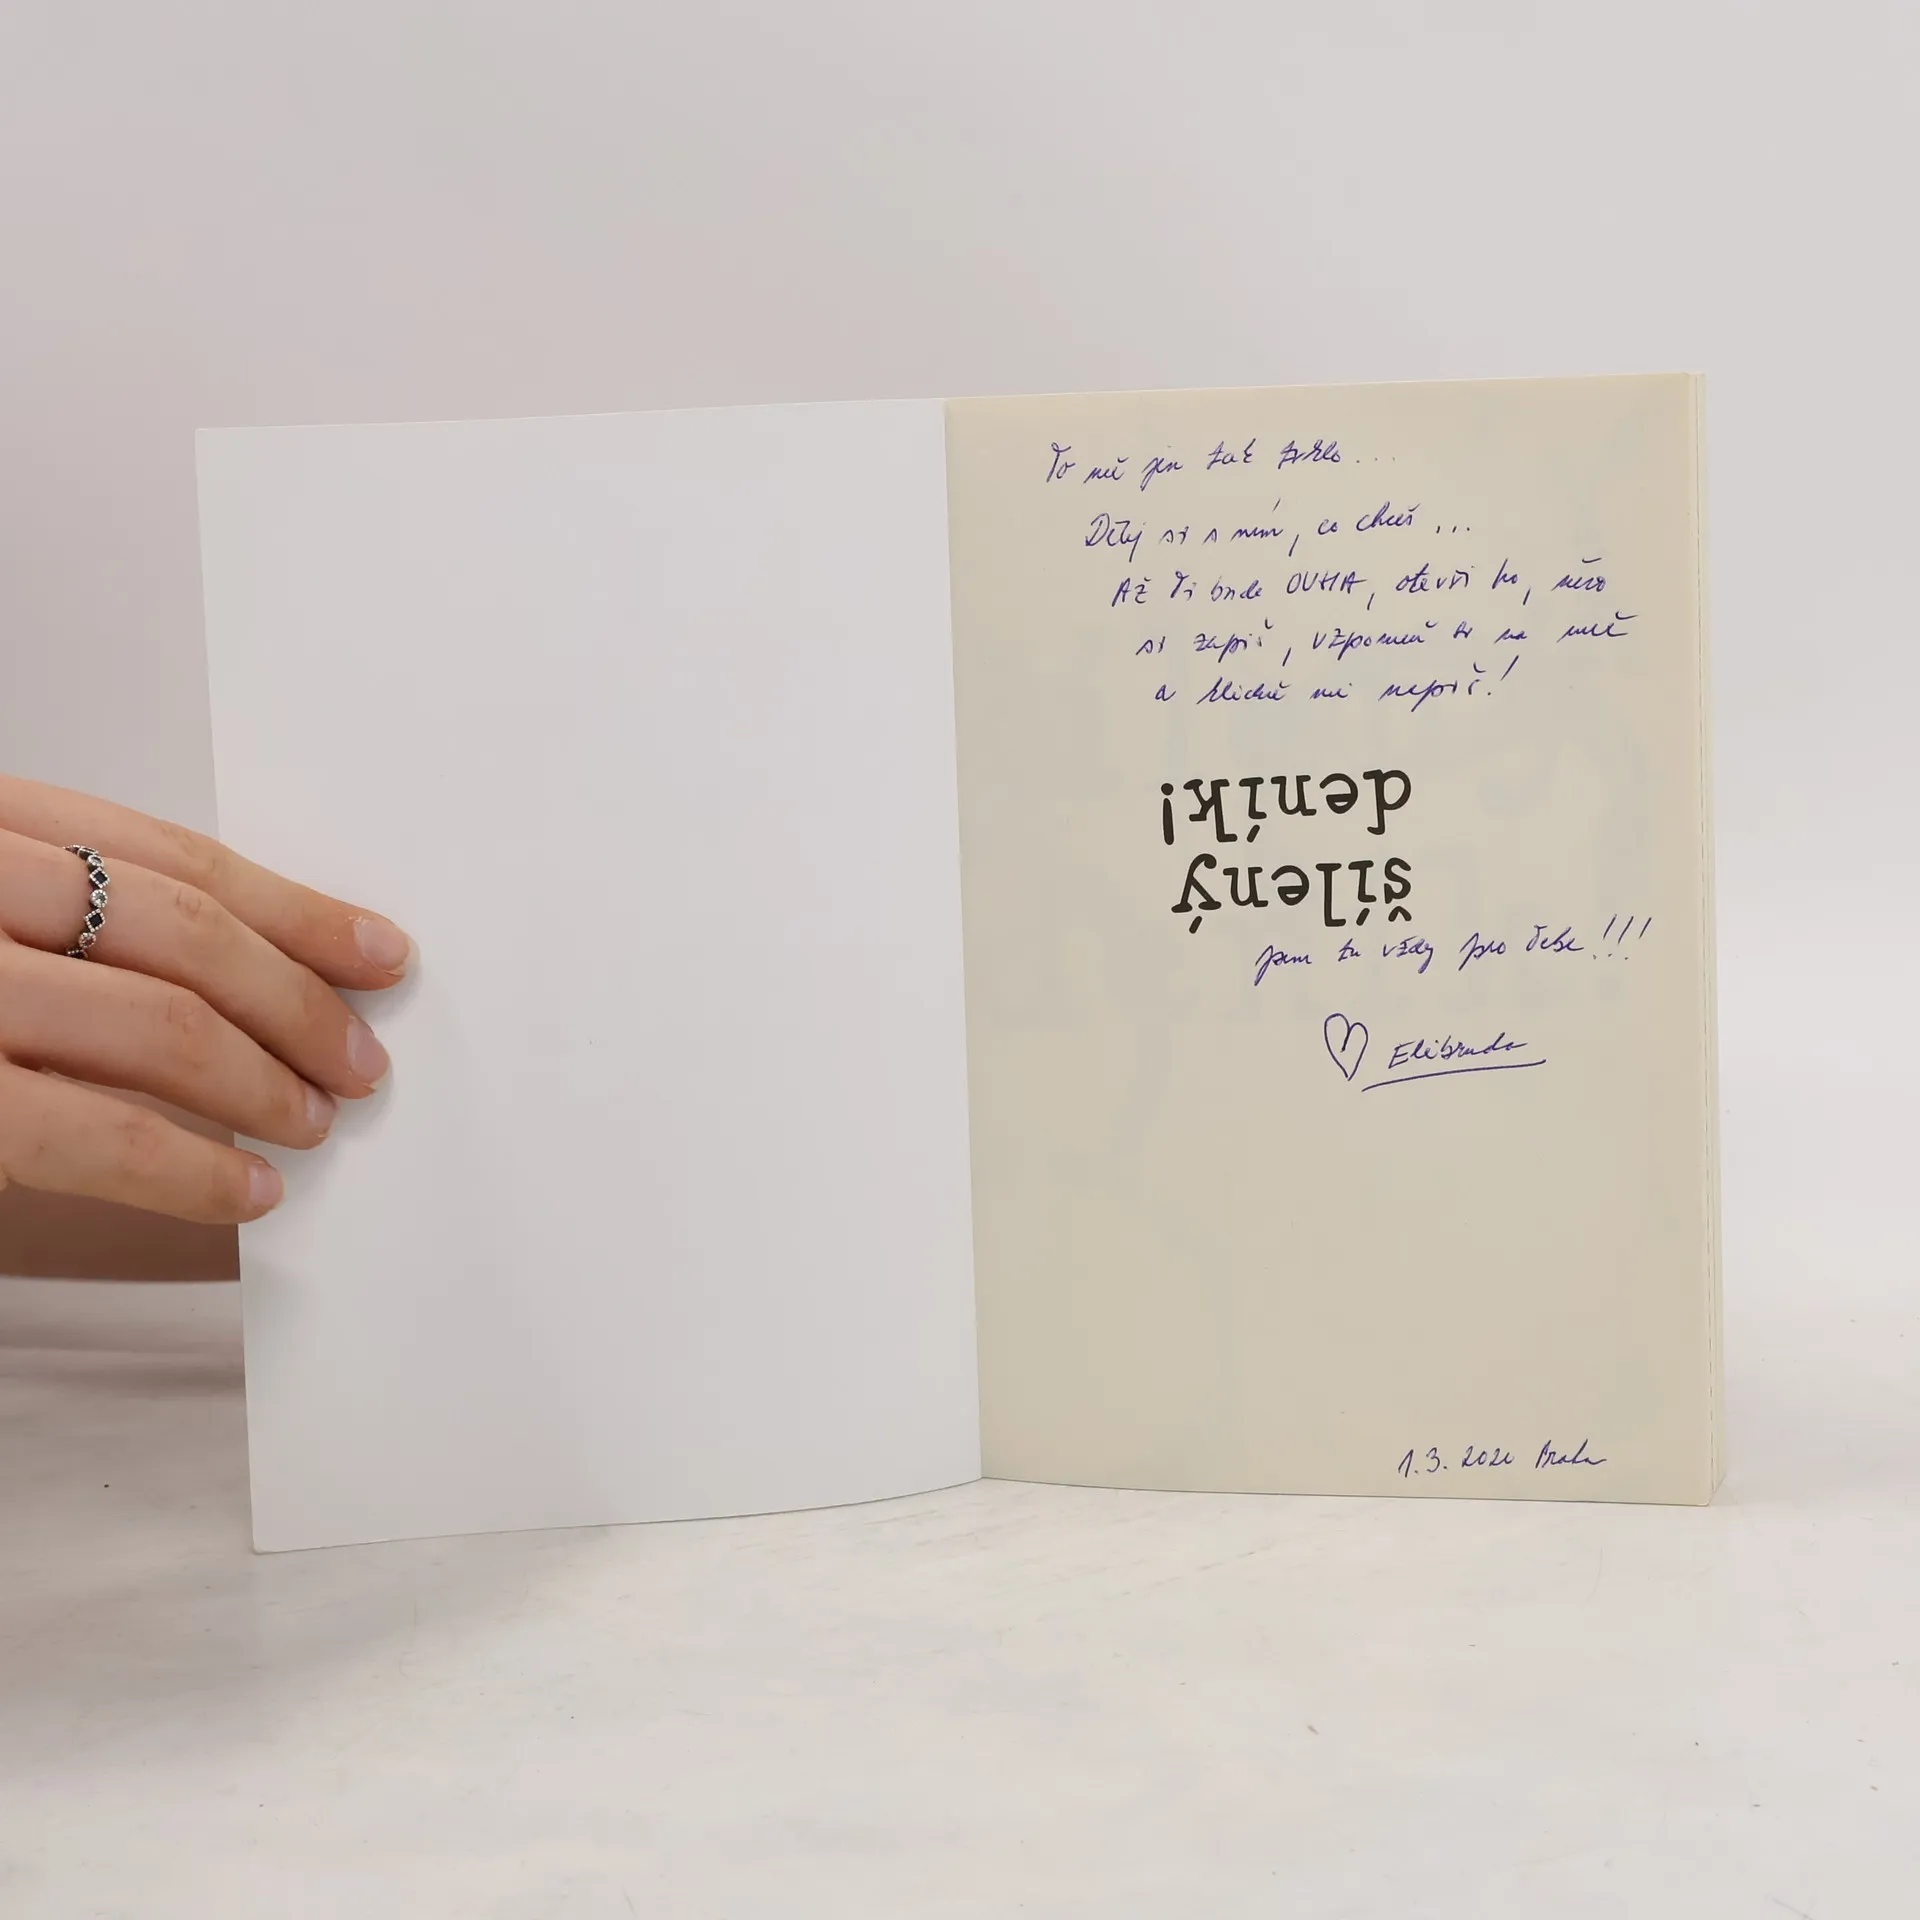 To mě jen tak trklo...
Dělej si s ním, co chceš...
Až Ti bude OUHA, otevři ho, něco
si zapiš, vzpomeň si na mě
a klidně mi napiš!
šílený
deník!
jsem tu vždy pro Tebe!!!
1.3. Praha